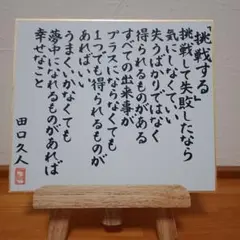 「挑戦する」
挑戦して失敗したなら
気にしなくていい
失うばかりではなく
得られるものがある
すべての出来事が
プラスにならなくても
1つでも得られるものが
あればいい
うまくいかなくても
夢中になれるものがあれば
幸せなこと
田口久人